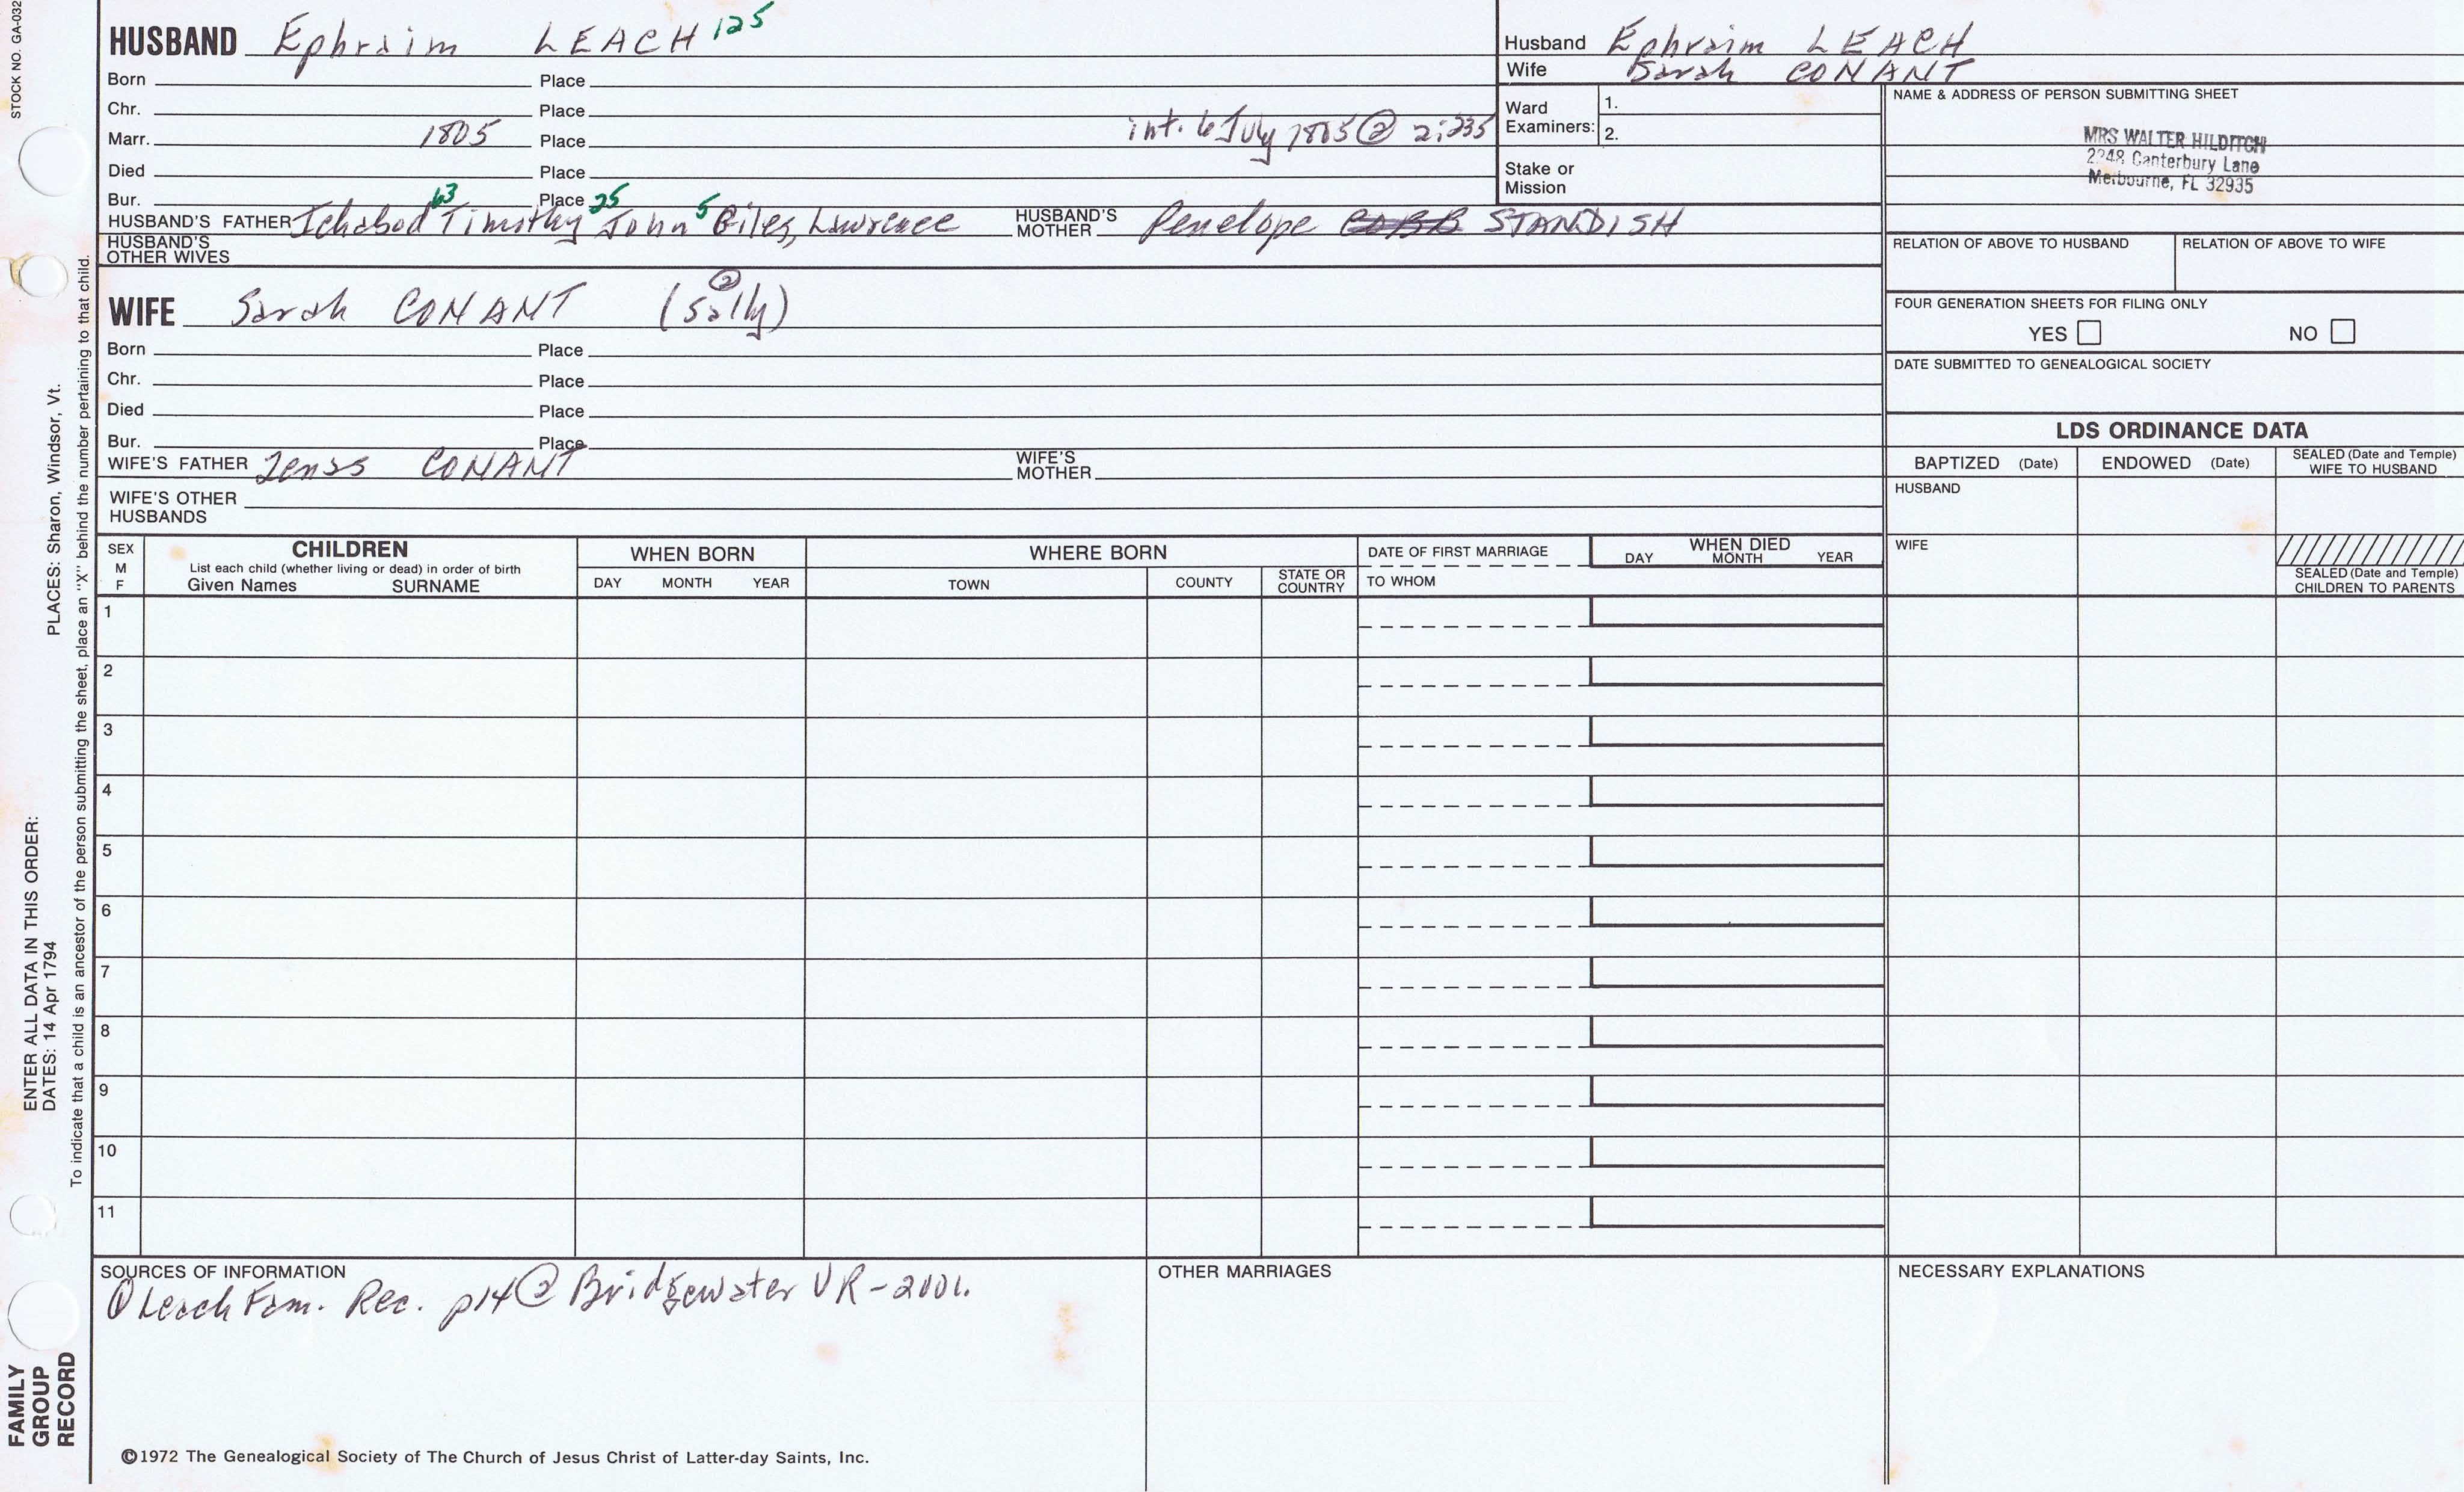 STOCK NO. GA-032
HUSBAND Ephraim LEACH 125
Born Place
Chr. Place
Marr. 1805 Place int. 6 July 1805 ② 2:235
Died Place
Bur. Place
HUSBAND'S FATHER Ichabod 63 Timothy 25 John 5 Giles, Lawrence HUSBAND'S MOTHER Penelope STANDISH
HUSBAND'S OTHER WIVES
Husband Ephraim LEACH
Wife Sarah CONANT
Ward Examiners: 1.
2.
Stake or Mission
NAME & ADDRESS OF PERSON SUBMITTING SHEET
MRS WALTER HILDITCH
2248 Canterbury Lane
Melbourne, FL 32935
RELATION OF ABOVE TO HUSBAND RELATION OF ABOVE TO WIFE
FOUR GENERATION SHEETS FOR FILING ONLY
YES NO
DATE SUBMITTED TO GENEALOGICAL SOCIETY
WIFE Sarah CONANT (Sally) ②
Born Place
Chr. Place
Died Place
Bur. Place
WIFE'S FATHER Zenas CONANT WIFE'S MOTHER
WIFE'S OTHER HUSBANDS
LDS ORDINANCE DATA
BAPTIZED (Date) ENDOWED (Date) SEALED (Date and Temple) WIFE TO HUSBAND
HUSBAND
WIFE
SEALED (Date and Temple) CHILDREN TO PARENTS
SEX M F
CHILDREN
List each child (whether living or dead) in order of birth
Given Names SURNAME
WHEN BORN
DAY MONTH YEAR
WHERE BORN
TOWN COUNTY STATE OR COUNTRY
DATE OF FIRST MARRIAGE
TO WHOM
WHEN DIED
DAY MONTH YEAR
1
2
3
4
5
6
7
8
9
10
11
SOURCES OF INFORMATION
① Leach Fam. Rec. p14 ② Bridgewater VR-2001.
OTHER MARRIAGES
NECESSARY EXPLANATIONS
©1972 The Genealogical Society of The Church of Jesus Christ of Latter-day Saints, Inc.
FAMILY GROUP RECORD
ENTER ALL DATA IN THIS ORDER:
DATES: 14 Apr 1794 PLACES: Sharon, Windsor, Vt.
To indicate that a child is an ancestor of the person submitting the sheet, place an "X" behind the number pertaining to that child.